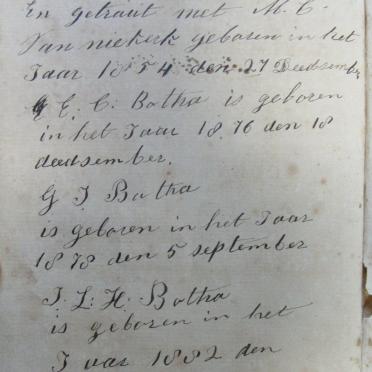 En getraut met M. C.
Van niekerk geboren in het
Jaar 1854 den 27 Deedsember
G E. C. Botha is geboren
in het Jaar 1876 den 18
deedsember.
G J Botha
is geboren in het Jaar
1878 den 5 september
J. L. H. Botha
is geboren in het
Jaar 1882 den